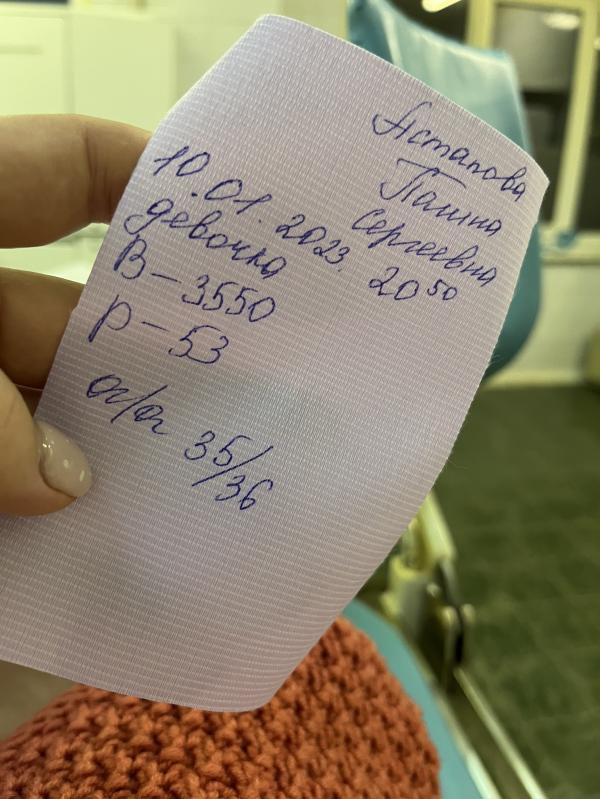 Астапова
Полина
Сергеевна
10.01.2023. 20 50
девочка
В – 3550
Р – 53
ог/ог 35/36